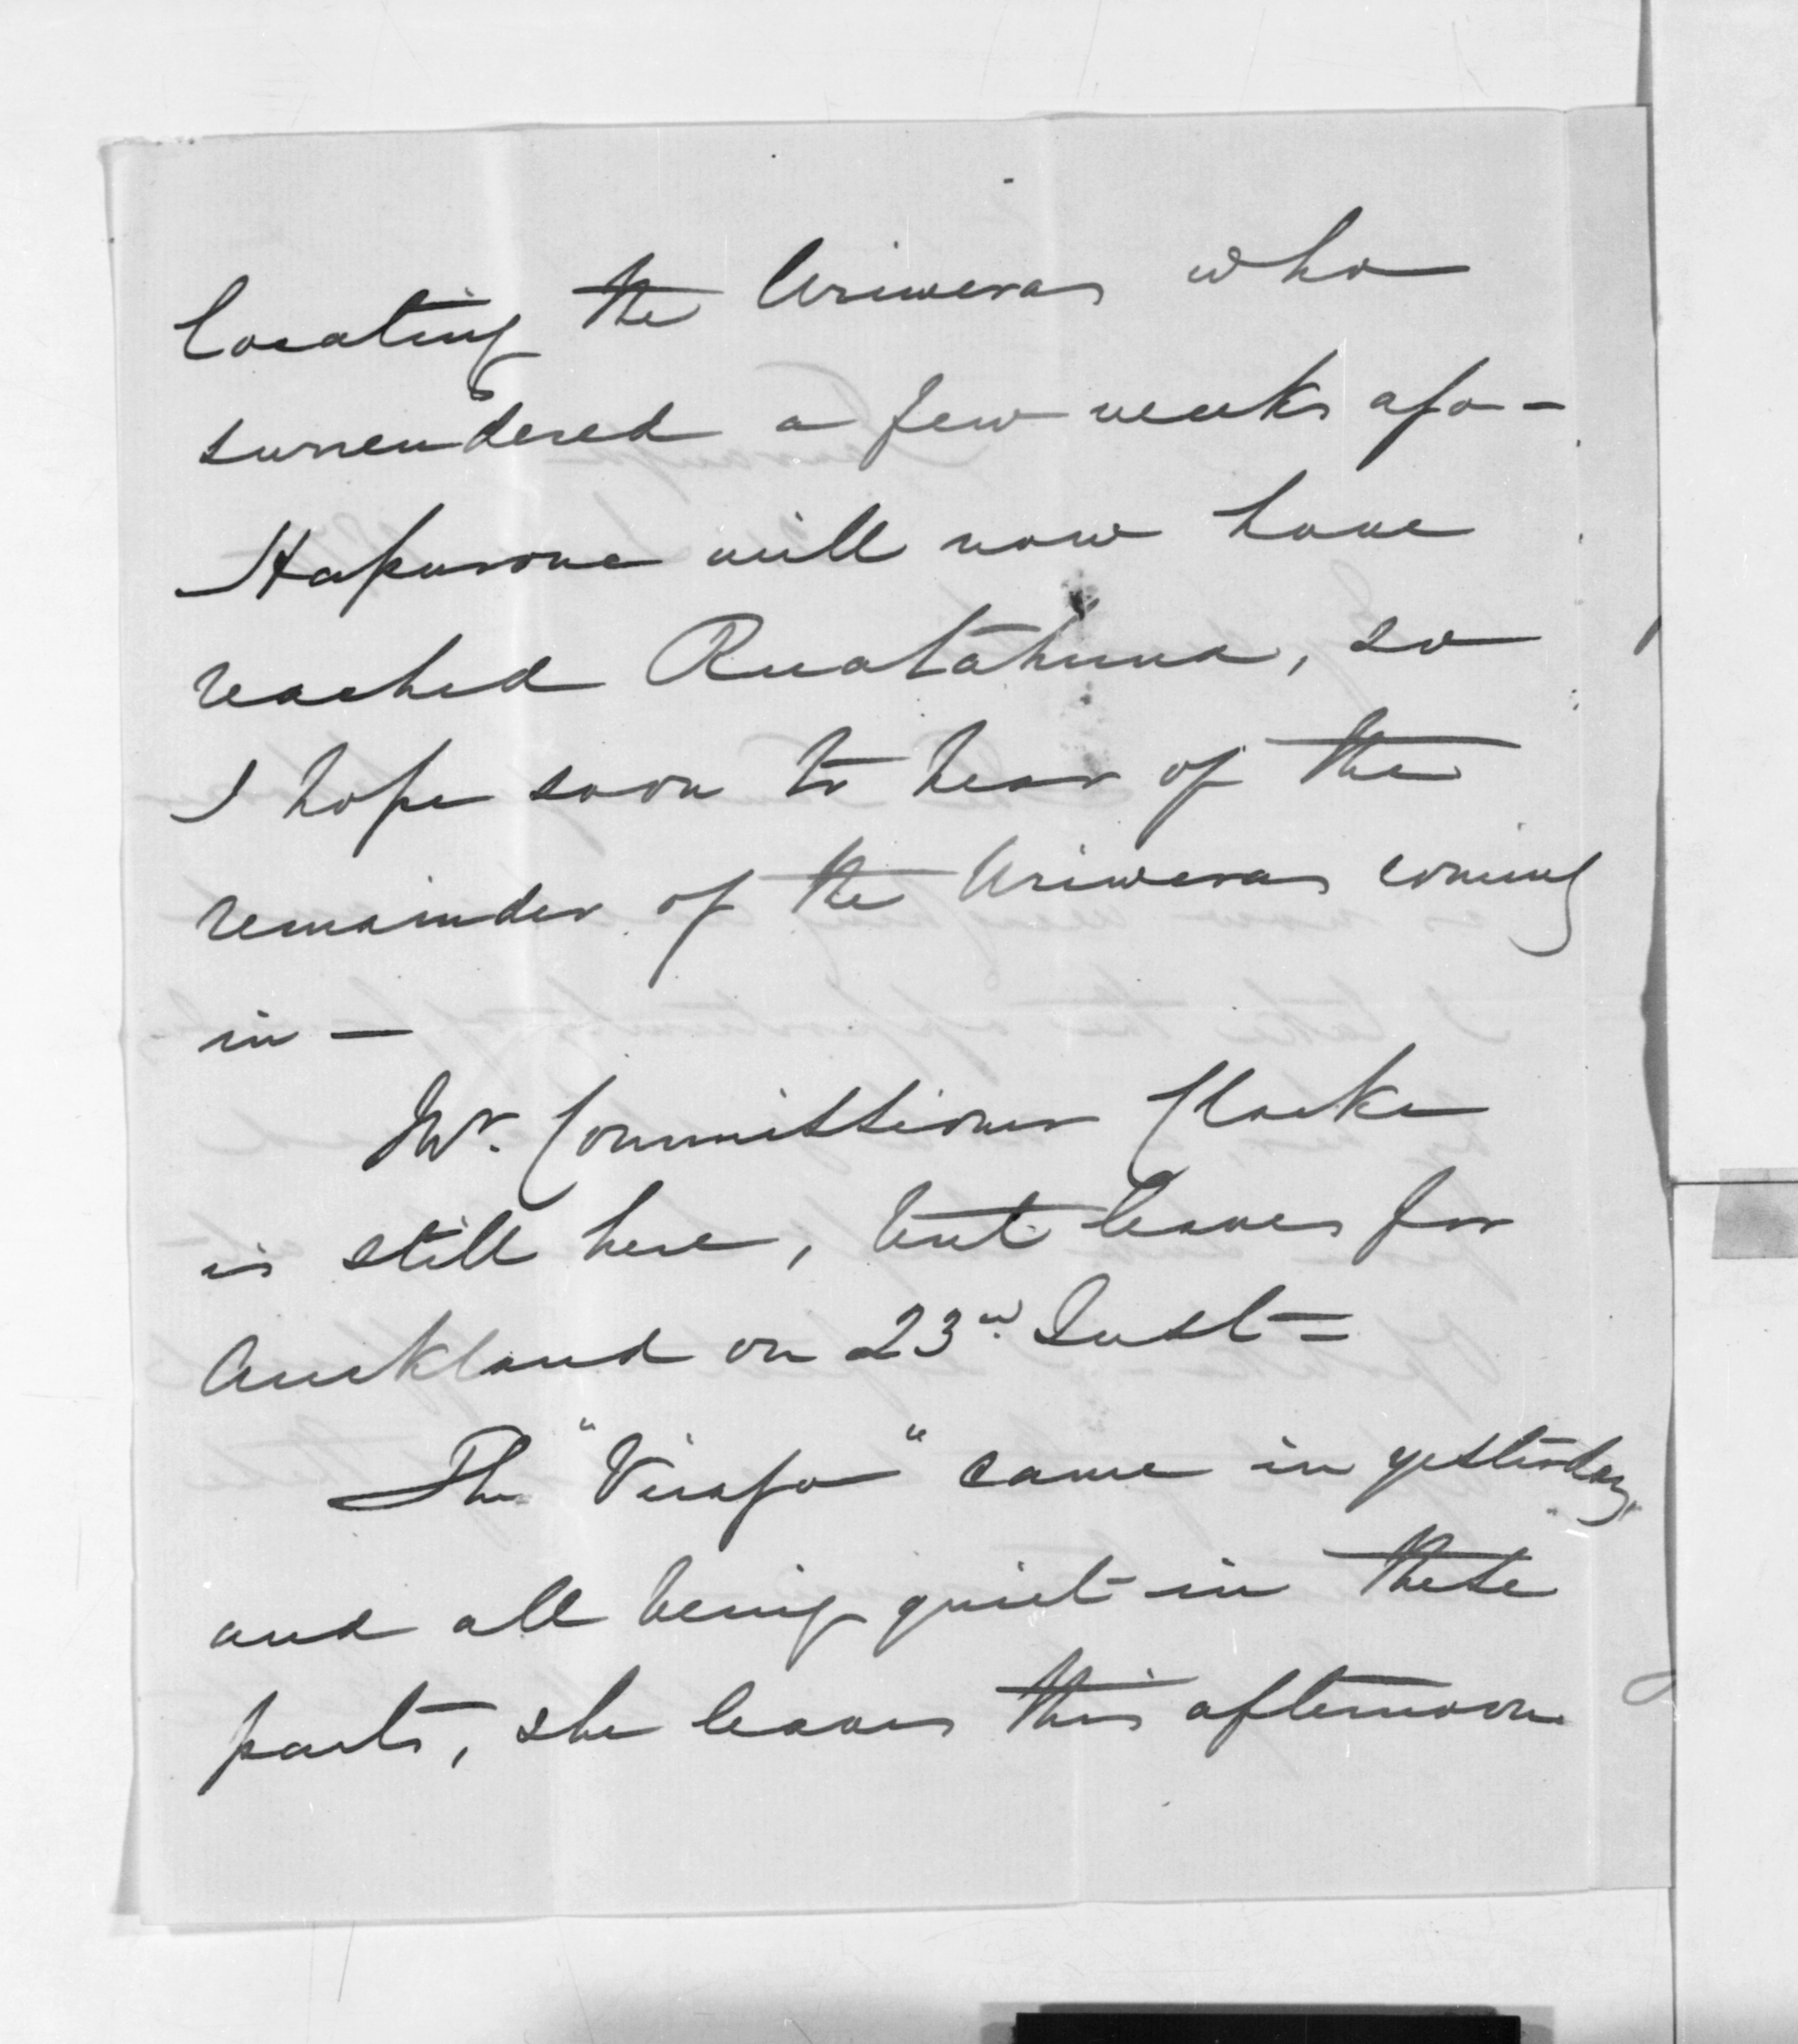 locating the Uriweras who
surrendered a few weeks ago -
Hapurona will now have
reached Ruatahuna, so
I hope soon to hear of the
remainder of the Uriweras coming
in —
Mr. Commissioner Clarke
is still here, but leaves for
Auckland on 23rd. Inst =
The "Virago" came in yesterday,
and all being quiet in these
parts, she leaves this afternoon